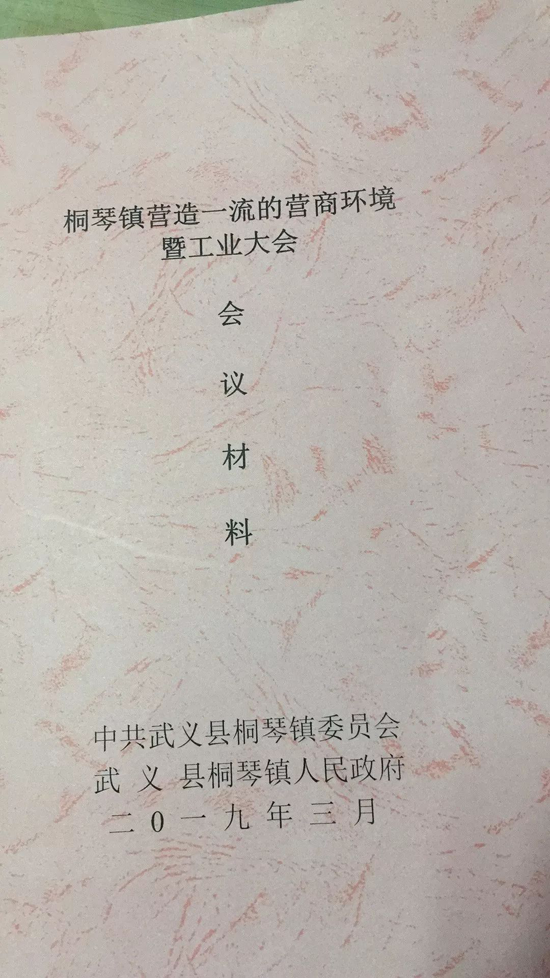 桐琴镇营造一流的营商环境
暨工业大会
会
议
材
料
中共武义县桐琴镇委员会
武 义 县桐琴镇人民政府
二 0 一 九 年 三 月